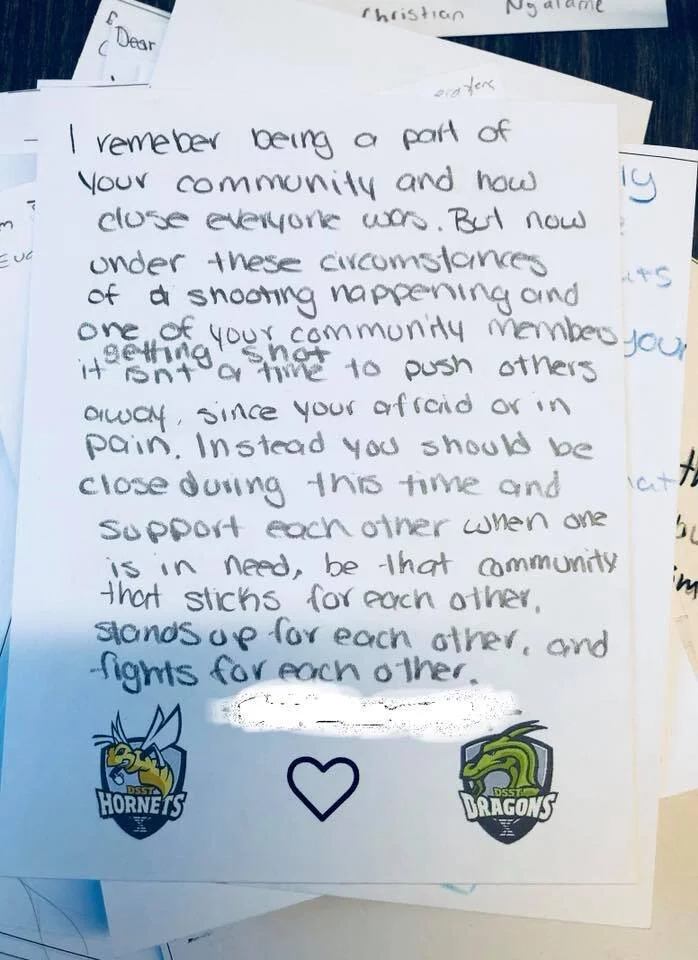 Christian Ngalame
Dear
I remeber being a part of
your community and how
close everyone was. But now
under these circumstances
of a shooting happening and
one of your community members
getting shot
it isnt a time to push others
away, since your afraid or in
pain. Instead you should be
close during this time and
support each other when one
is in need, be that community
that sticks for each other,
stands up for each other, and
fights for each other.
DSST
HORNETS
DSST
DRAGONS
your